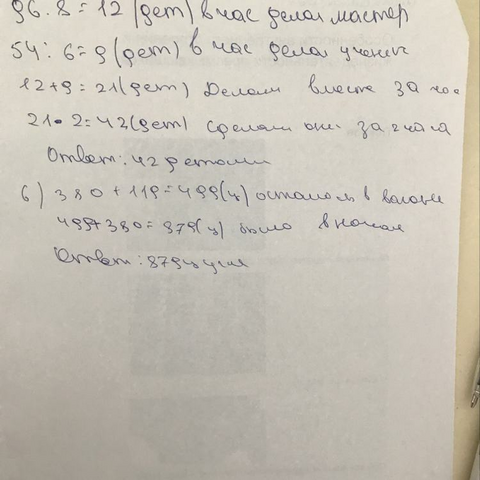 96:8=12 (дет) в час делал мастер
54:6=9 (дет) в час делал ученик
12+9=21 (дет) Делали вместе за час
21•2=42 (дет) сделали они за 2 часа
Ответ: 42 детали
б) 380+119=499(ц) осталось в вагоне
499+380=879(ц) было в начале
Ответ: 879 ц угля